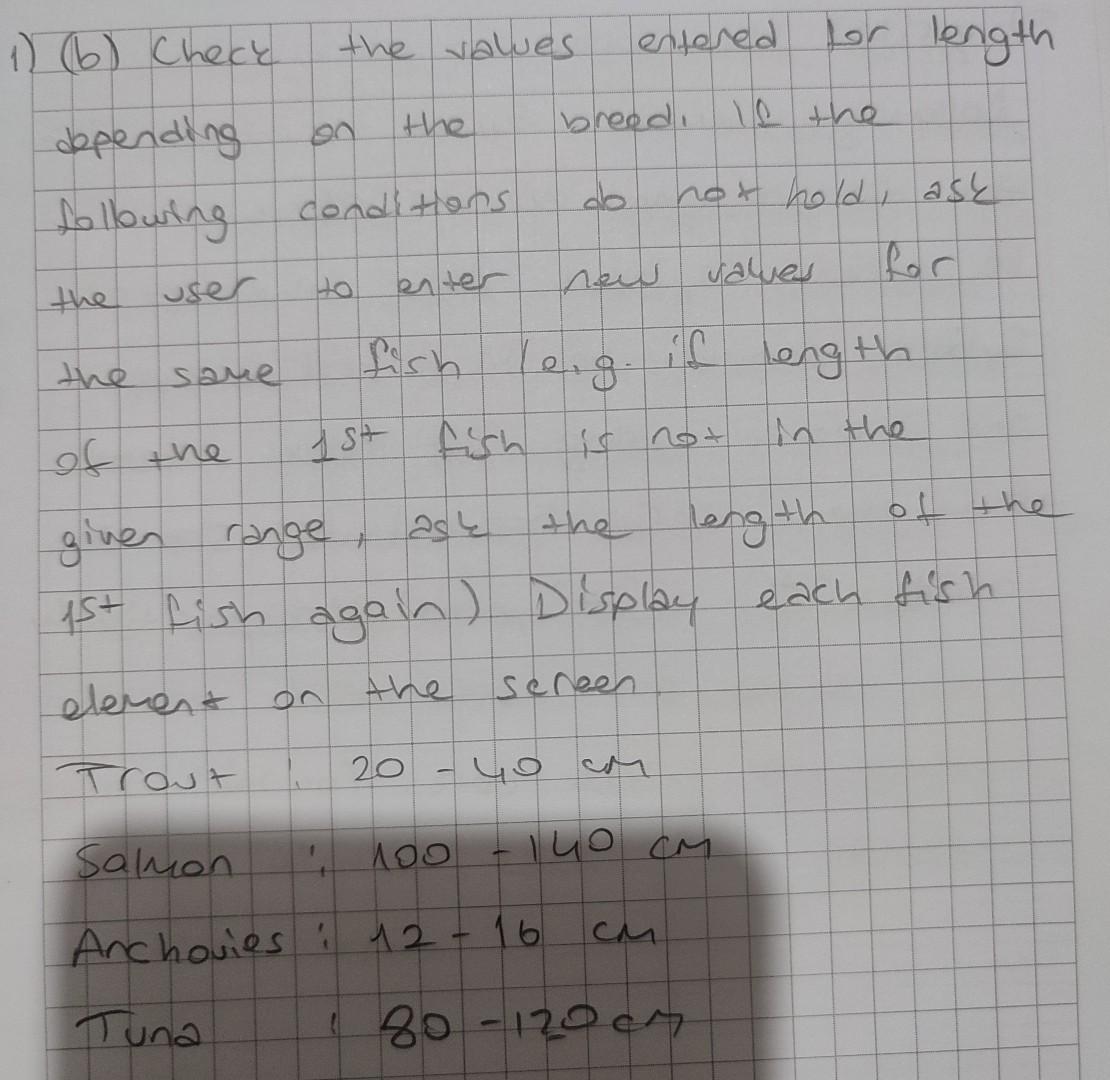 1) (b) Check the values entered for length
depending on the breed. If the
following conditions do not hold, ask
the user to enter new values for
the same fish (e.g. if length
of the 1st fish is not in the
given range, ask the length of the
1st fish again) Display each fish
element on the screen
Trout : 20 - 40 cm
Salmon : 100 - 140 cm
Anchovies : 12 - 16 cm
Tuna : 80 - 120 cm